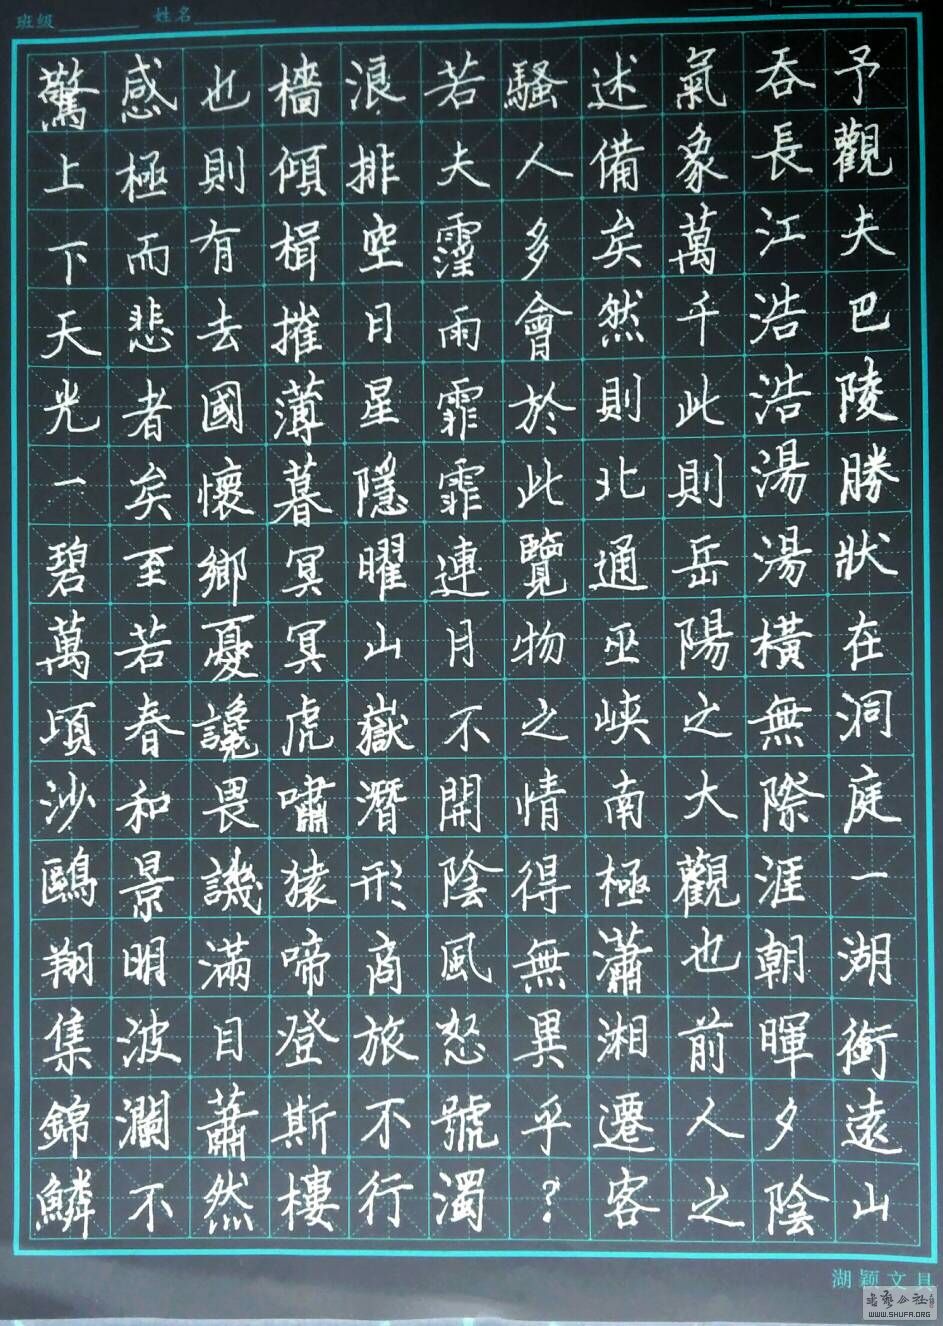 班级 姓名
予觀夫巴陵勝狀在洞庭一湖銜遠山
吞長江浩浩湯湯橫無際涯朝暉夕陰
氣象萬千此則岳陽之大觀也前人之
述備矣然則北通巫峽南極瀟湘遷客
騷人多會於此覽物之情得無異乎?
若夫霪雨霏霏連月不開陰風怒號濁
浪排空日星隱曜山嶽潛形商旅不行
檣傾楫摧薄暮冥冥虎嘯猿啼登斯樓
也則有去國懷鄉憂讒畏譏滿目蕭然
感極而悲者矣至若春和景明波瀾不
驚上下天光一碧萬頃沙鷗翔集錦鱗
湖颖文具
书艺公社
WWW.SHUFA.ORG